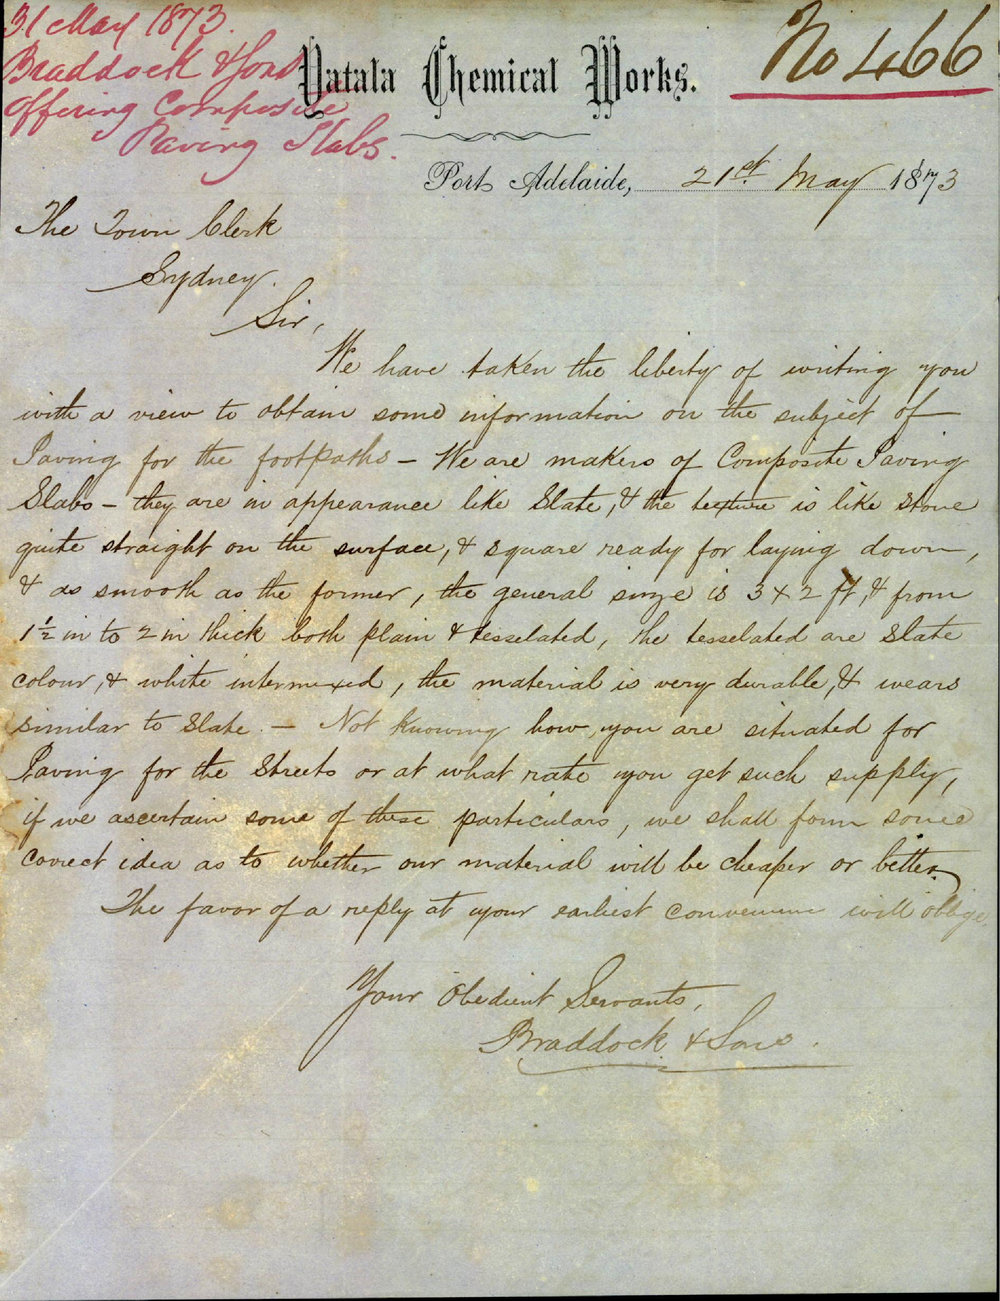 31 May 1873.
Braddock & Sons
Offering Composite
Paving Slabs.
No 466
Yatala Chemical Works.
Port Adelaide, 21st May 1873
The Town Clerk
Sydney.
Sir,
We have taken the liberty of writing you
with a view to obtain some information on the subject of
Paving for the footpaths – We are makers of Composite Paving
Slabs – they are in appearance like Slate, & the texture is like stone
quite straight on the surface, & square ready for laying down,
& as smooth as the former, the general sinze is 3 x 2 ft, & from
1½ in to 2 in thick both plain & tesselated, the tesselated are slate
colour, & white intermixed, the material is very durable, & wears
similar to slate. – Not knowing how you are situated for
Paving for the Streets or at what rate you get such supply,
if we ascertain some of these particulars, we shall form some
correct idea as to whether our material will be cheaper or better.
The favor of a reply at your earliest convenience will oblige
Your Obedient Servants,
Braddock & Sons.